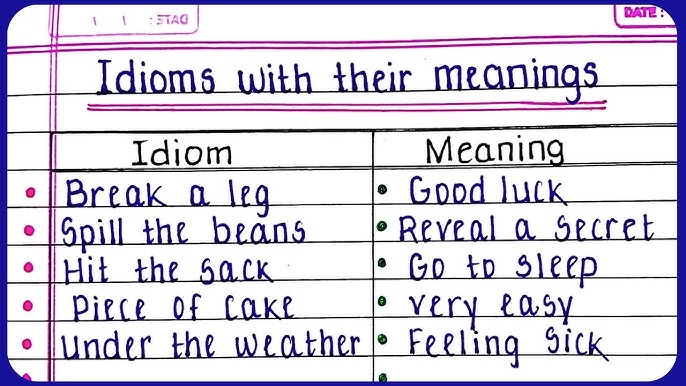 DATE :
DATE :
Idioms with their meanings
Idiom Meaning
Break a leg Good luck
Spill the beans Reveal a secret
Hit the sack Go to sleep
Piece of cake very easy
under the weather Feeling sick